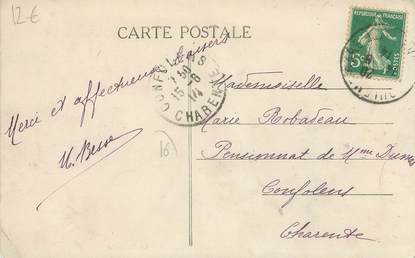 12 €
CARTE POSTALE
CONFOLENS
7 30
15-8
14
CHARENTE
5c
Merci et affectueux baisers
16
Mademoiselle
Marie Robadeau
Pensionnat de Mme
Confolens
Charente